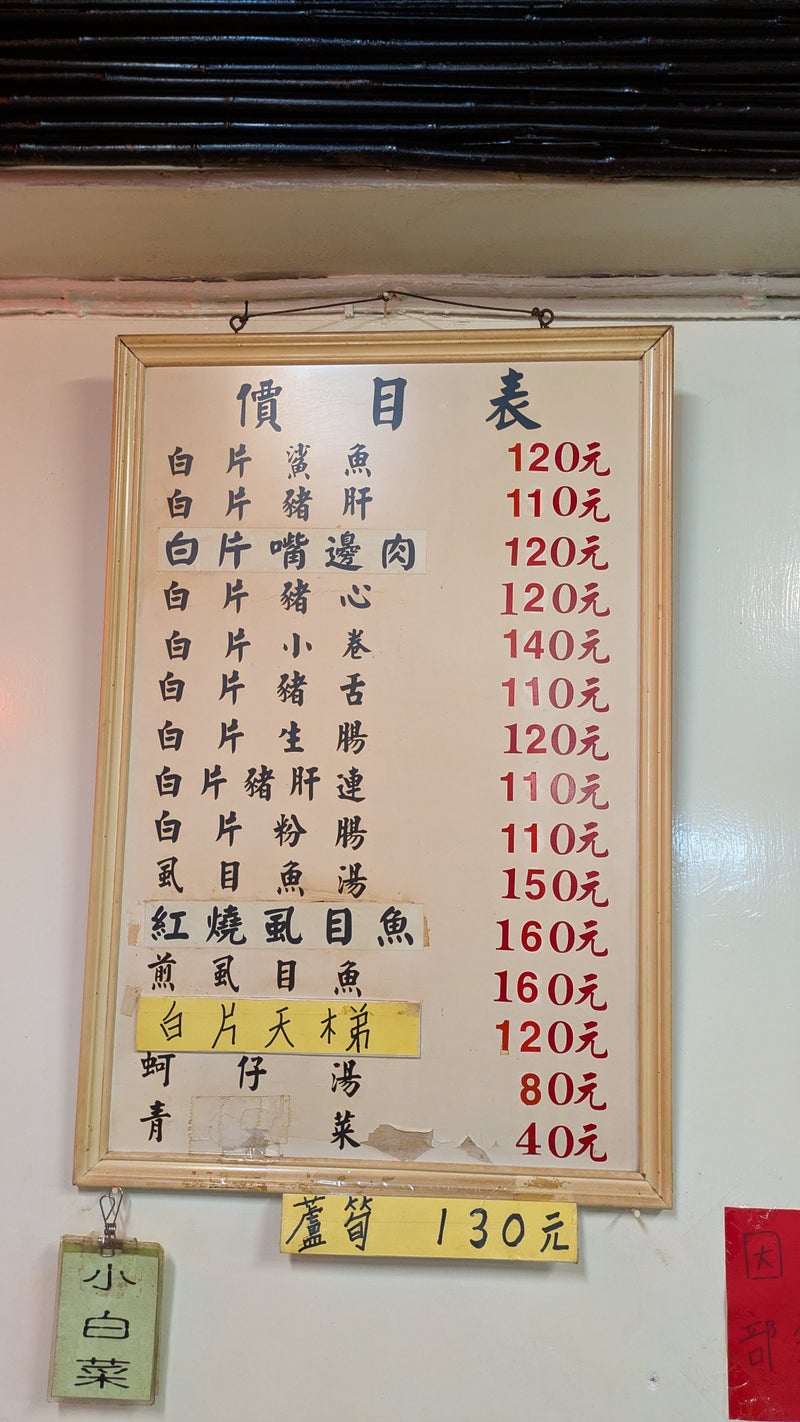 價目表
白片鯊魚 120元
白片豬肝 110元
白片嘴邊肉 120元
白片豬心 120元
白片小卷 140元
白片豬舌 110元
白片生腸 120元
白片豬肝連 110元
白片粉腸 110元
虱目魚湯 150元
紅燒虱目魚 160元
煎虱目魚 160元
白片天梯 120元
蚵仔湯 80元
青菜 40元
蘆筍 130元
小白菜
因
部